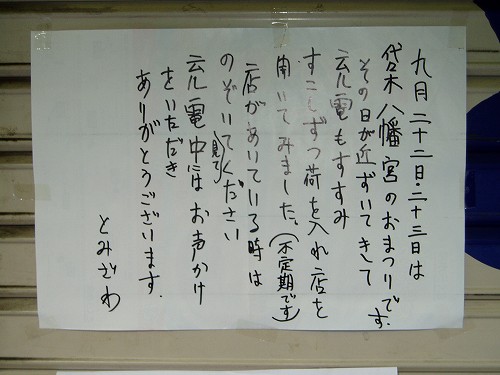 九月二十二日・二十三日は
代々木八幡宮のおまつりです.
その日が近ずいてきして
充電もすすみ
すこしずつ荷を入れ店を
開いてみました。(不定期です)
店があいている時は
のぞいて見てください
充電中はお声かけ
をいただき
ありがとうございます.
とみざわ